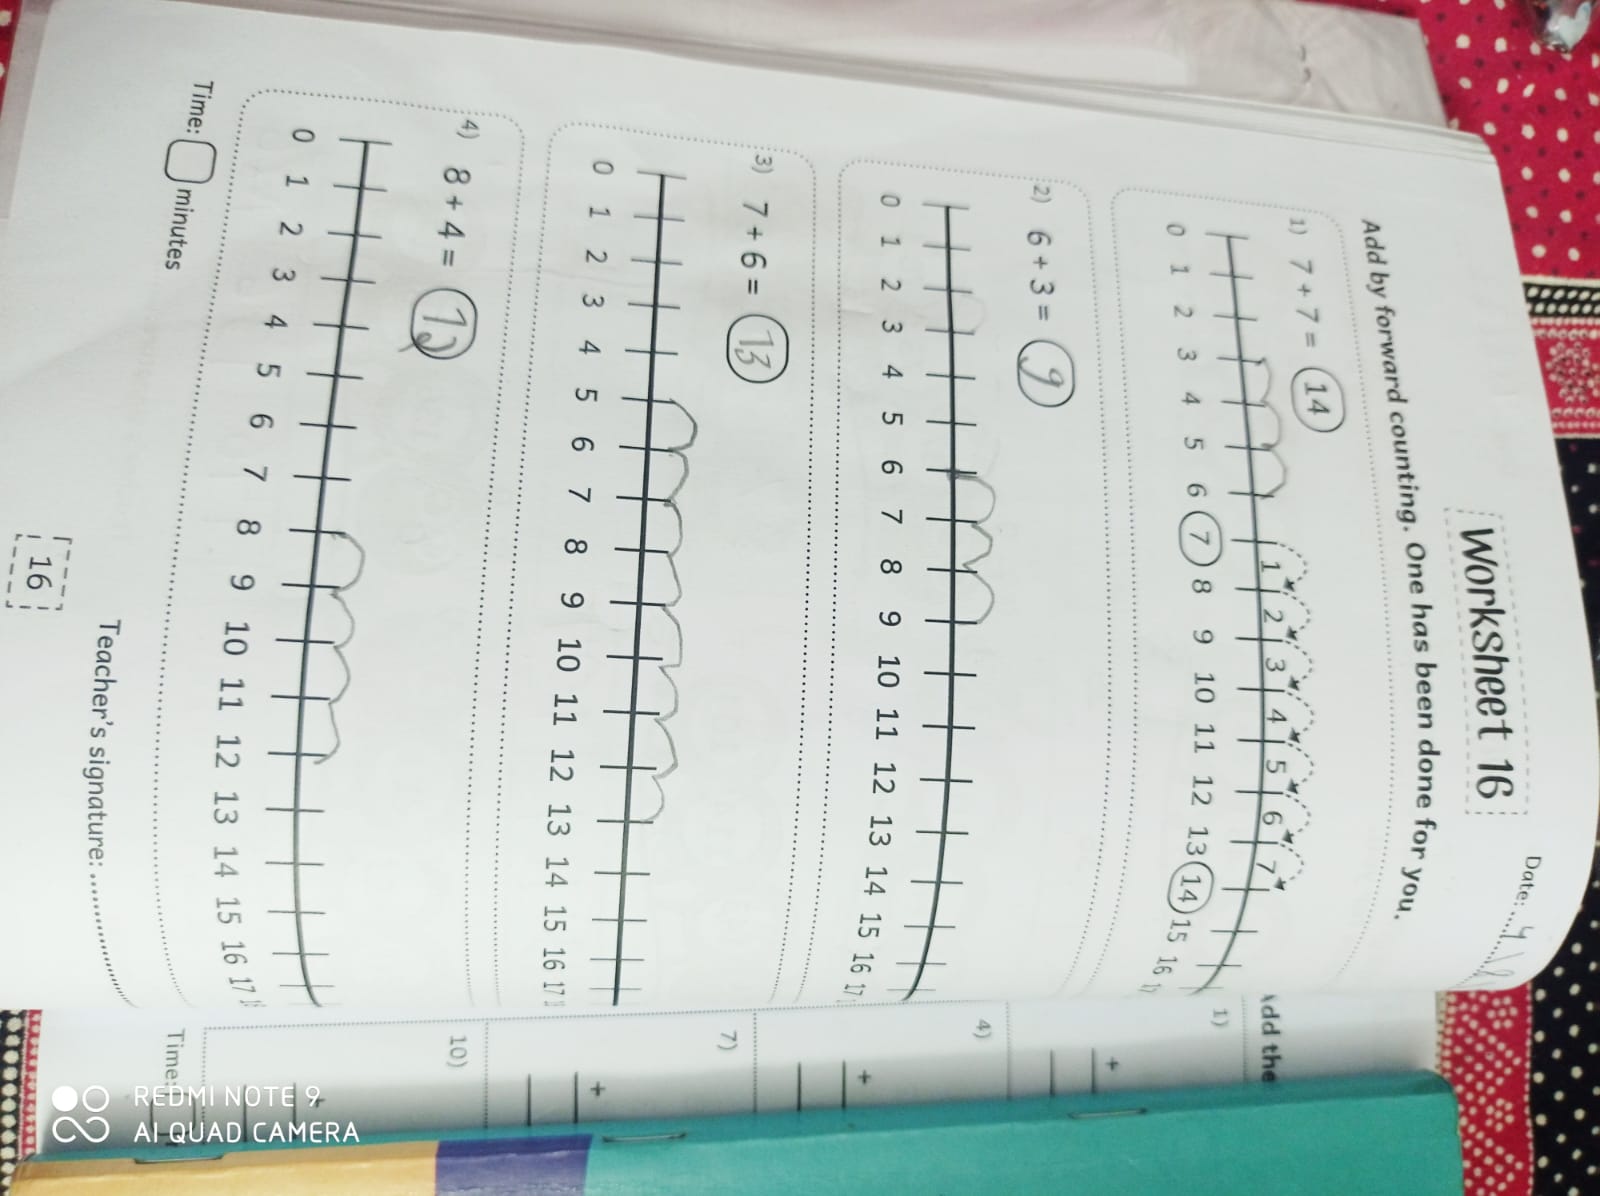 Date:
Worksheet 16
Add by forward counting. One has been done for you.
1) 7 + 7 = 14
1 2 3 4 5 6 7
0 1 2 3 4 5 6 7 8 9 10 11 12 13 14 15 16
2) 6 + 3 = 9
0 1 2 3 4 5 6 7 8 9 10 11 12 13 14 15 16 17
3) 7 + 6 = 13
0 1 2 3 4 5 6 7 8 9 10 11 12 13 14 15 16 17
4) 8 + 4 = 12
0 1 2 3 4 5 6 7 8 9 10 11 12 13 14 15 16 17
Time: minutes
Teacher's signature:
16
Add the
1)
+
4)
+
7)
+
10)
+
Time:
REDMI NOTE 9
AI QUAD CAMERA